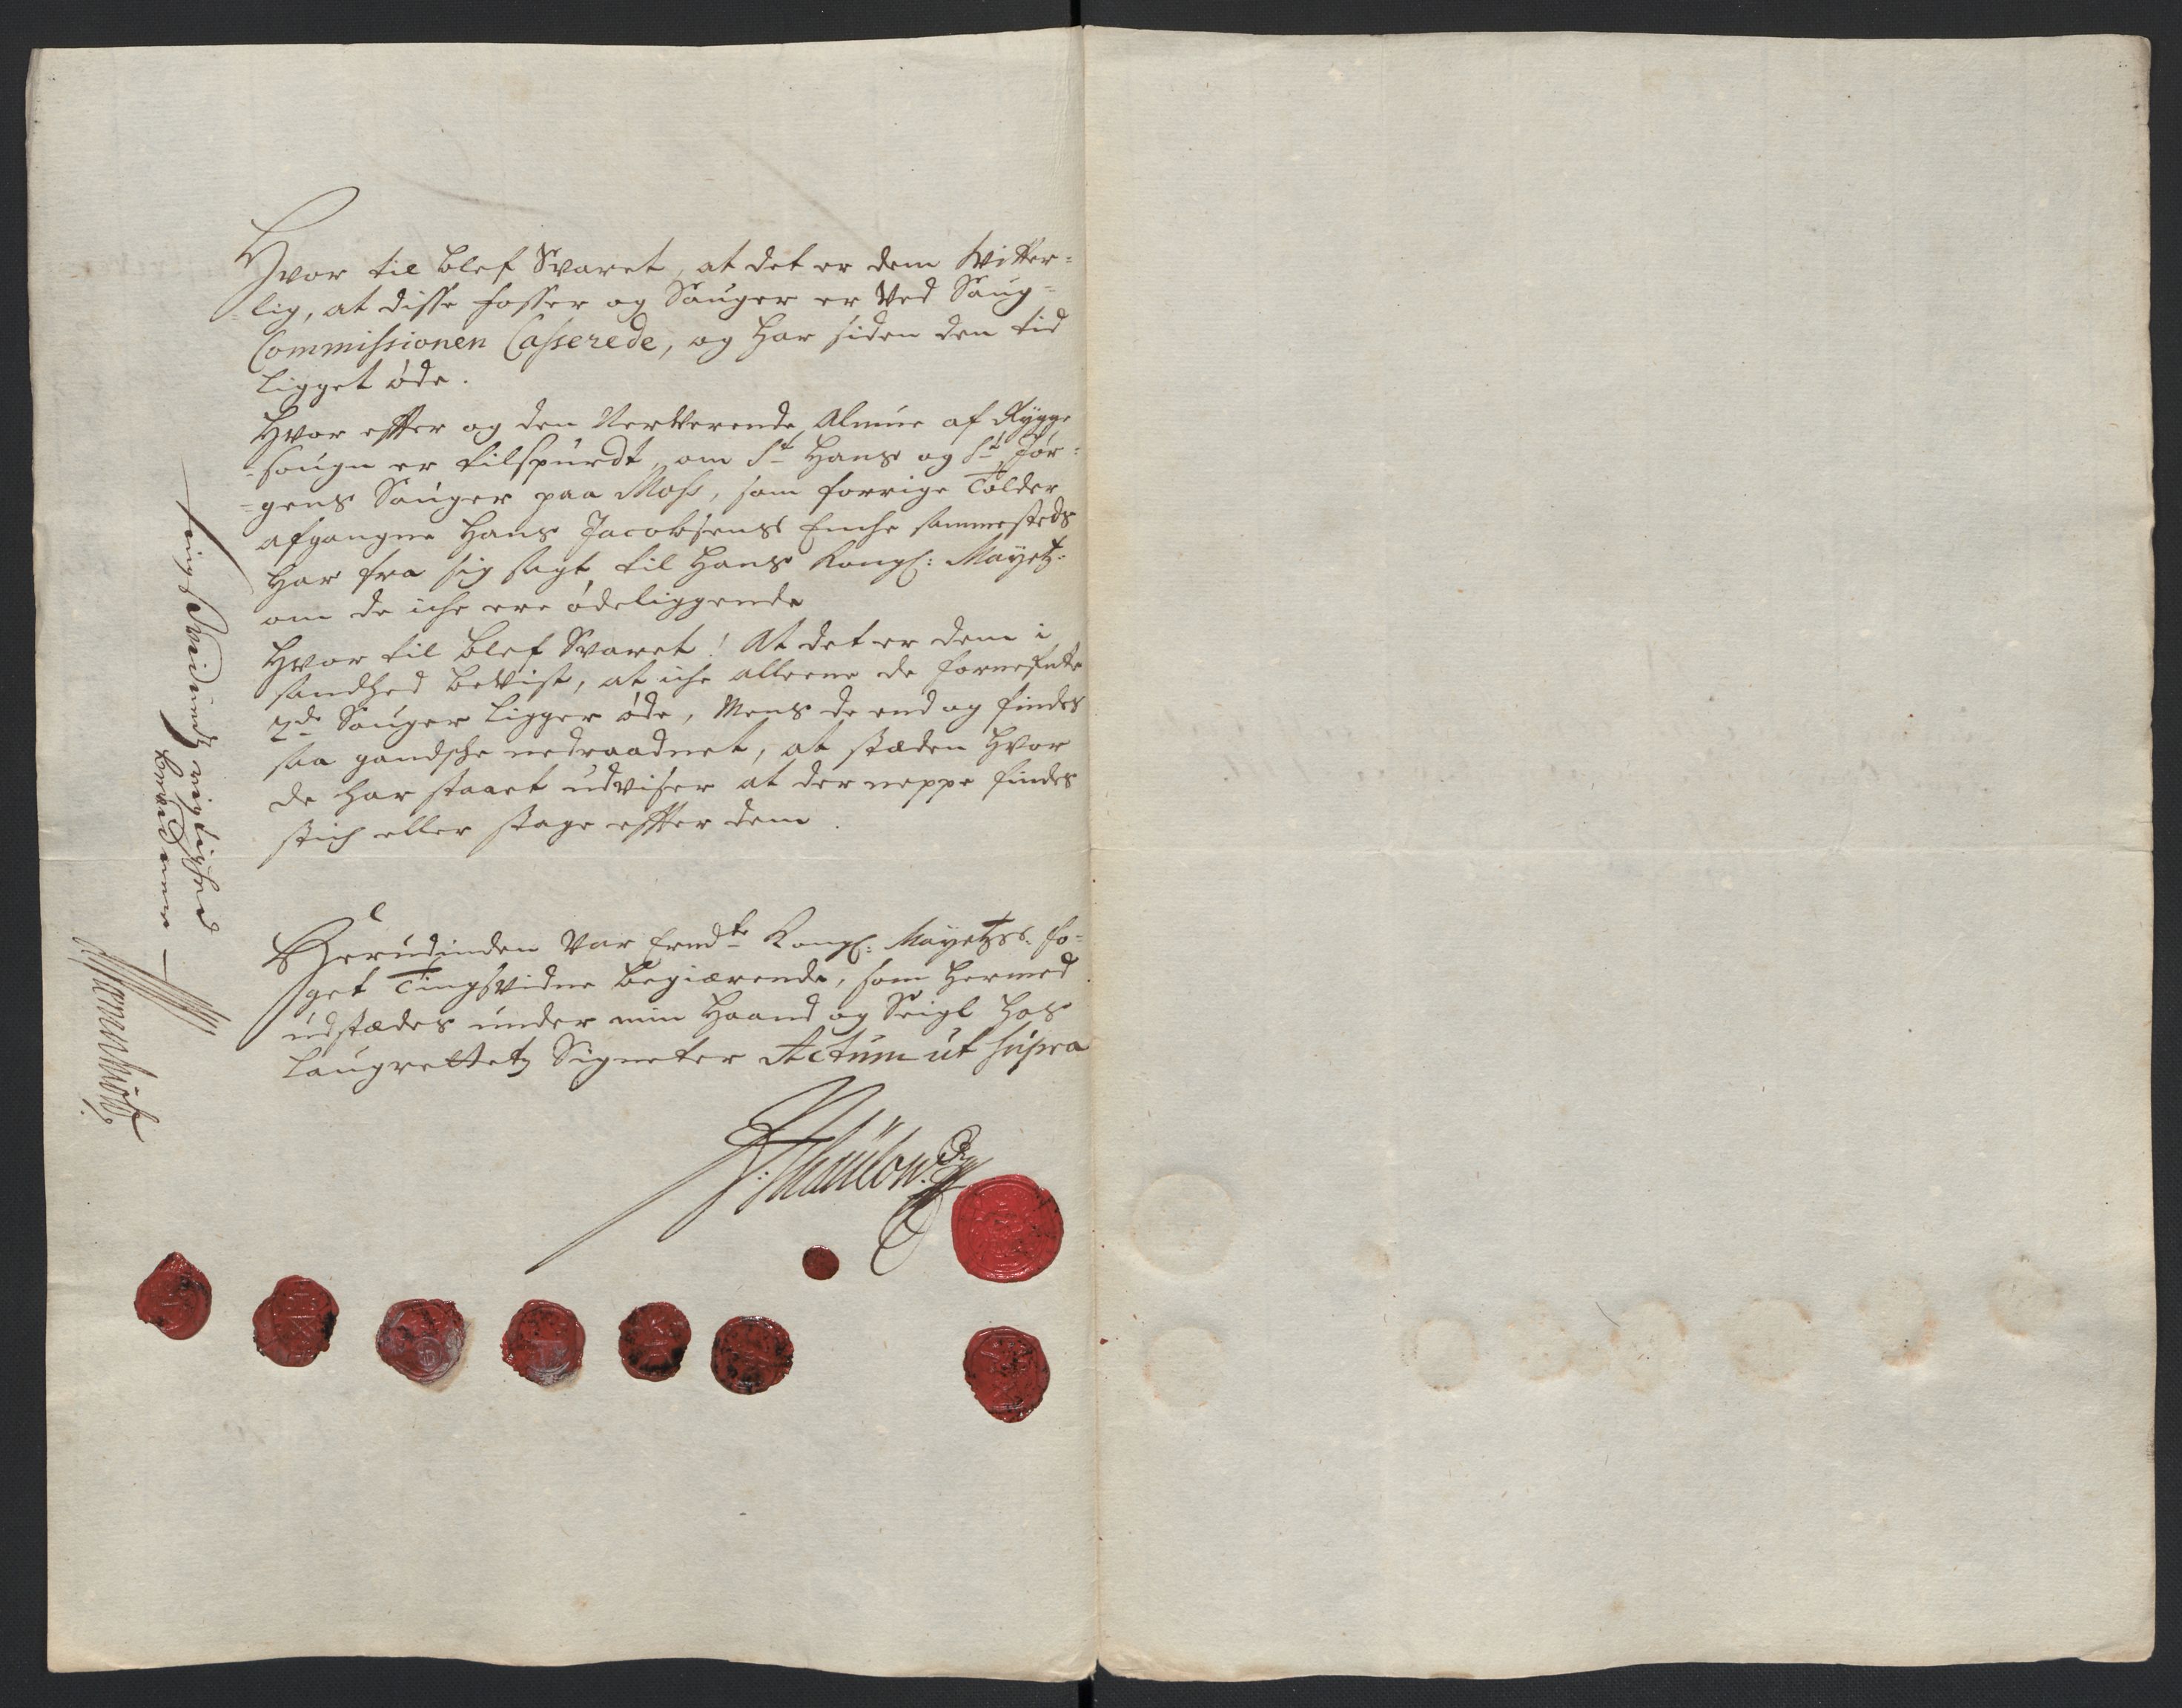 Hvor til blef Svaret, at det er dem Witter=
lig, at disse fosser og Sauger er Ved Saug=
Commissionen Casserede, og har siden den tid
ligget øde.
Hvor effter og den Nerverende Almue af Rygge
sougn er tilspurdt, om St Hans og St Jør=
=gens Sauger paa Moss, som forrige Tolder
afgangne Hans Jacobsens Enche sammesteds
har fra sig sagt til Hans Kongl: Mayetz:
om de iche ere ødeliggende
Hvor til blef Svaret! At det er dem i
sandhed bevist, at iche alleene de fornefnte
2de Sauger ligger øde, Mens de end og findes
saa gandsche nedraadnet, at stæden hvor
de har staaet udviser at der neppe findes
stich eller stage effter dem.
Herudinden Var Ermdte Kongl: Mayetzs: Fo=
get Tingsvidne begiærende, som hermed
udstædes under min Haand og Seigl hos
Laugrettetz Signeter Actum ut supra
Thaulow
Ting Vidnetz rigtighed